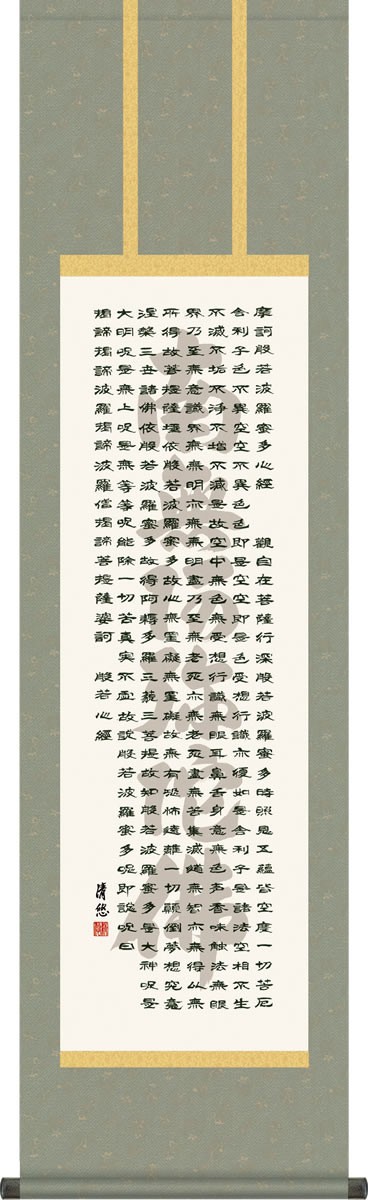 摩訶般若波羅蜜多心經　觀自在菩薩行深般若波羅蜜多時照見五蘊皆空度一切苦厄
舎利子色不異空空不異色色即是空空即是色受想行識亦復如是舎利子是諸法空相不生
不滅不垢不淨不増不減是故空中無色無受想行識無眼耳鼻舌身意無色声香味触法無眼
界乃至無意識界無無明亦無無明盡乃至無老死亦無老死盡無苦集滅道無智亦無得以無
所得故菩提薩埵依般若波羅蜜多故心無罣礙無罣礙故無有恐怖遠離一切顛倒夢想究竟
涅槃三世諸佛依般若波羅蜜多故得阿耨多羅三藐三菩提故知般若波羅蜜多是大神呪是
大明呪是無上呪是無等等呪能除一切苦真実不虚故説般若波羅蜜多呪即説呪曰
掲諦掲諦波羅掲諦波羅僧掲諦菩提薩婆訶　般若心經
清悠
南無阿弥陀佛